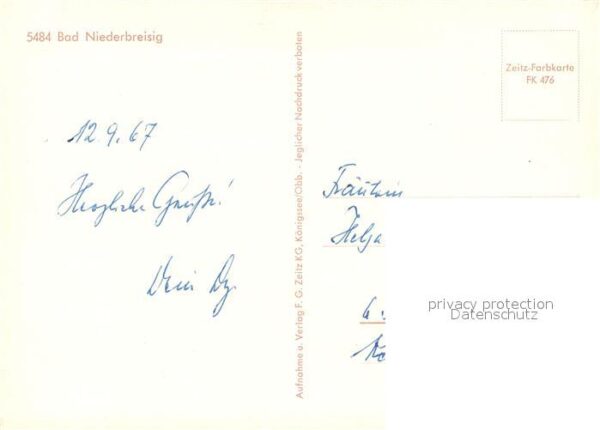 5484 Bad Niederbreisig
12.9.67
Herzliche Grüße!
Dein
Aufnahme u. Verlag F. G. Zeitz KG, Königssee/Obb. - Jeglicher Nachdruck verboten
Zeitz-Farbkarte
FK 476
Fräulein
Helga
6
privacy protection
Datenschutz